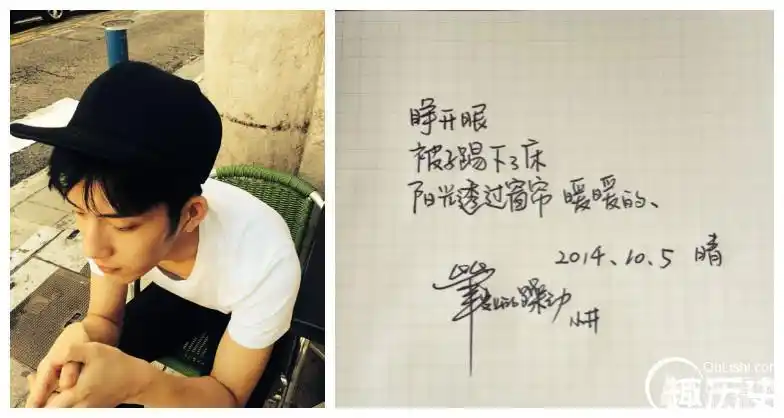 睁开眼
被子踢下了床
阳光透过窗帘 暖暖的、
2014.10.5 晴
的躁动
小井
QuLishi.com
趣历史